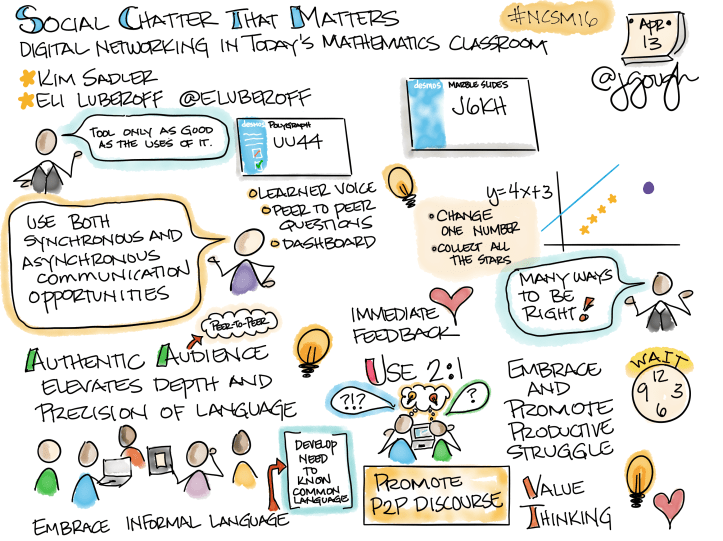 SOCIAL CHATTER THAT MATTERS
DIGITAL NETWORKING IN TODAY'S MATHEMATICS CLASSROOM
#NCSM16
APR
13
@jgough
KIM SADLER
ELI LUBEROFF @ELUBEROFF
TOOL ONLY AS GOOD
AS THE USES OF IT.
desmos
POLYGRAPH
UU44
desmos
MARBLE SLIDES
J6KH
LEARNER VOICE
PEER TO PEER
QUESTIONS
DASHBOARD
y=4x+3
CHANGE
ONE NUMBER
COLLECT ALL
THE STARS
USE BOTH
SYNCHRONOUS AND
ASYNCHRONOUS
COMMUNICATION
OPPORTUNITIES
MANY WAYS
TO BE
RIGHT!
PEER-TO-PEER
AUTHENTIC AUDIENCE
ELEVATES DEPTH AND
PREZISION OF LANGUAGE
IMMEDIATE
FEEDBACK
USE 2:1
?!?
?
EMBRACE
AND
PROMOTE
PRODUCTIVE
STRUGGLE
WAIT
12
9 3
6
DEVELOP
NEED
TO
KNOW
COMMON
LANGUAGE
EMBRACE INFORMAL LANGUAGE
PROMOTE
P2P DISCOURSE
VALUE
THINKING